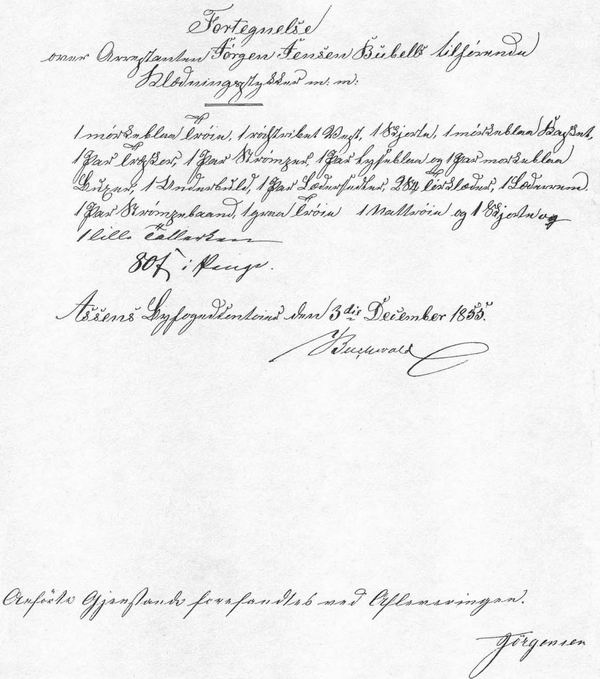 Fortegnelse
over Arrestanten Jörgen Jensen Bübells tilhörende
Klædningsstykker m. m:
1 mörkeblaa Tröie, 1 röstribet Vest, 1 Skjorte, 1 mörkeblaa Kasket,
1 Par Træskoe, 1 Par Strömper, 1 Par lyseblaa og 1 Par mörkeblaa
Buxer, 1 Underbuld, 1 Par Lædersutter, 2 Törklæder, 1 Læderrem
1 Par Strömpebaand, 1 graa Tröie 1 Nattröie og 1 Skjorte og
1 lille Tallerken
80 i Penge.
Assens Byfogedcontoir den 3die December 1855.
Buchwald
Anförte Gjenstande forefandtes ved Afleveringen.
Jörgensen